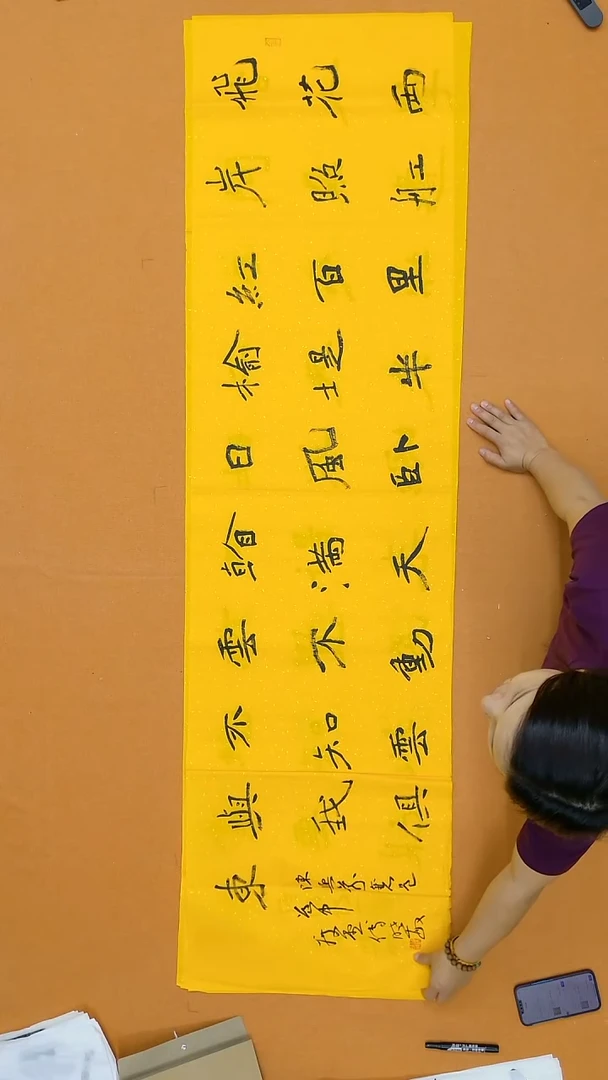 飛花兩
岸照舡
紅百里
榆堤半
日風卧
看滿天
雲不動
不知雲
與我俱
東
陳與義襄邑
道中